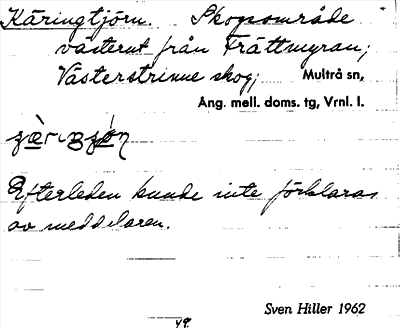 Käringtjörn. Skogsområde
västerut från Trättmyran;
Västerstrinne skog; Multrå sn,
Ång. mell. doms. tg, Vrnl. l.
Efterleden kunde inte förklaras
av meddelaren.
Sven Hiller 1962
49.